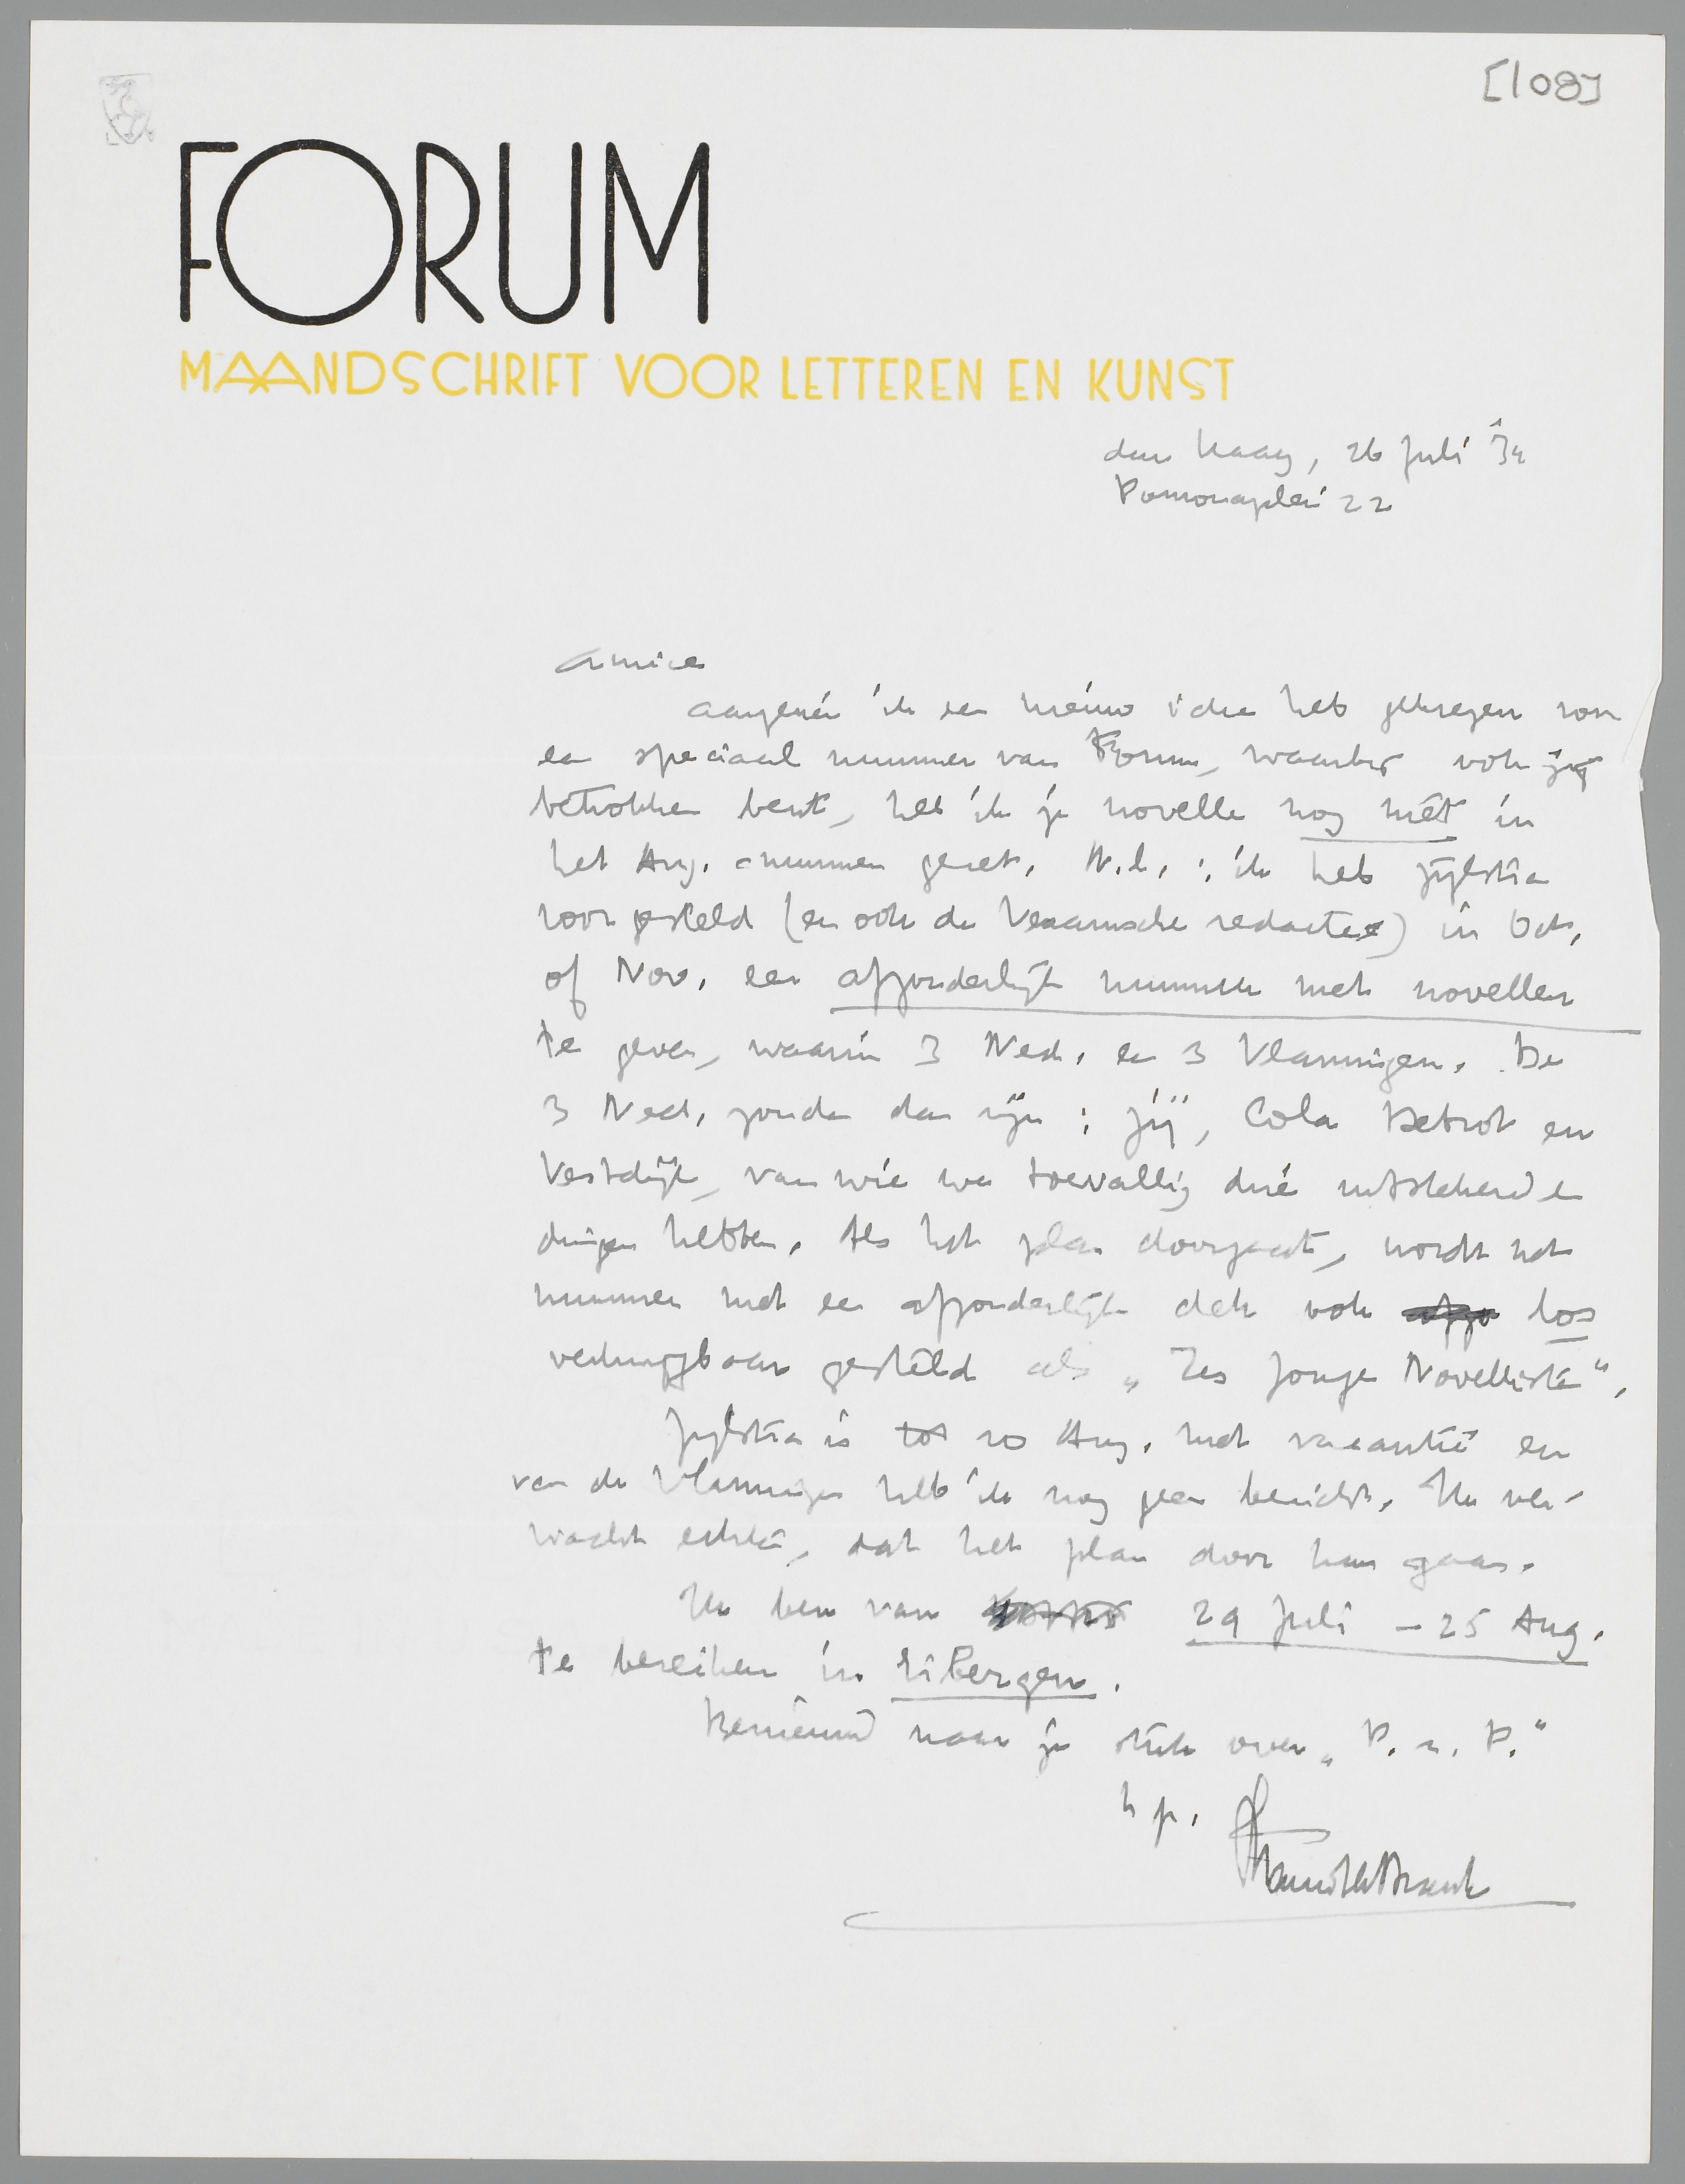 [108]
FORUM
MAANDSCHRIFT VOOR LETTEREN EN KUNST
den Haag, 26 Juli '34
Pomonaplein 22
Amice
aangezien ik een nieuw idee heb gekregen voor
een speciaal nummer van Forum, waarbij ook jij
betrokken bent, heb ik je novelle nog niet in
het Aug.-nummer gezet. N.l.: ik heb Zijlstra
voorgesteld (en ook de Vlaamsche redactie) in Oct.
of Nov. een afzonderlijk nummer met novellen
te geven, waarin 3 Ned. en 3 Vlamingen. De
3 Ned. zouden dan zijn: jij, Cola Debrot en
Vestdijk, van wie we toevallig drie uitstekende
dingen hebben. Als het plan doorgaat, wordt het
nummer met een afzonderlijk dek ook afzo los
verkrijgbaar gesteld als „Zes Jonge Novellisten".
Zijlstra is tot 10 Aug. met vacantie en
van de Vlamingen heb ik nog geen bericht. Ik ver-
wacht echter, dat het plan door kan gaan.
Ik ben van 29 Juli – 25 Aug.
te bereiken in Eibergen.
Benieuwd naar je stuk over „P. z. P."
h gr.
Menno ter Braak